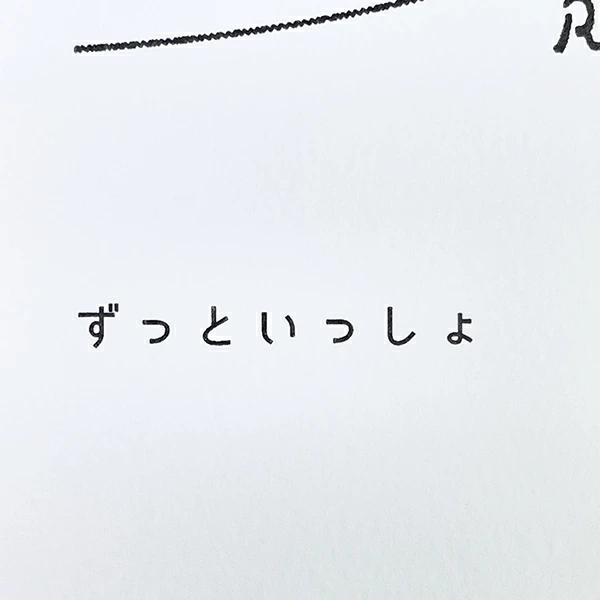 R
ずっといっしょ